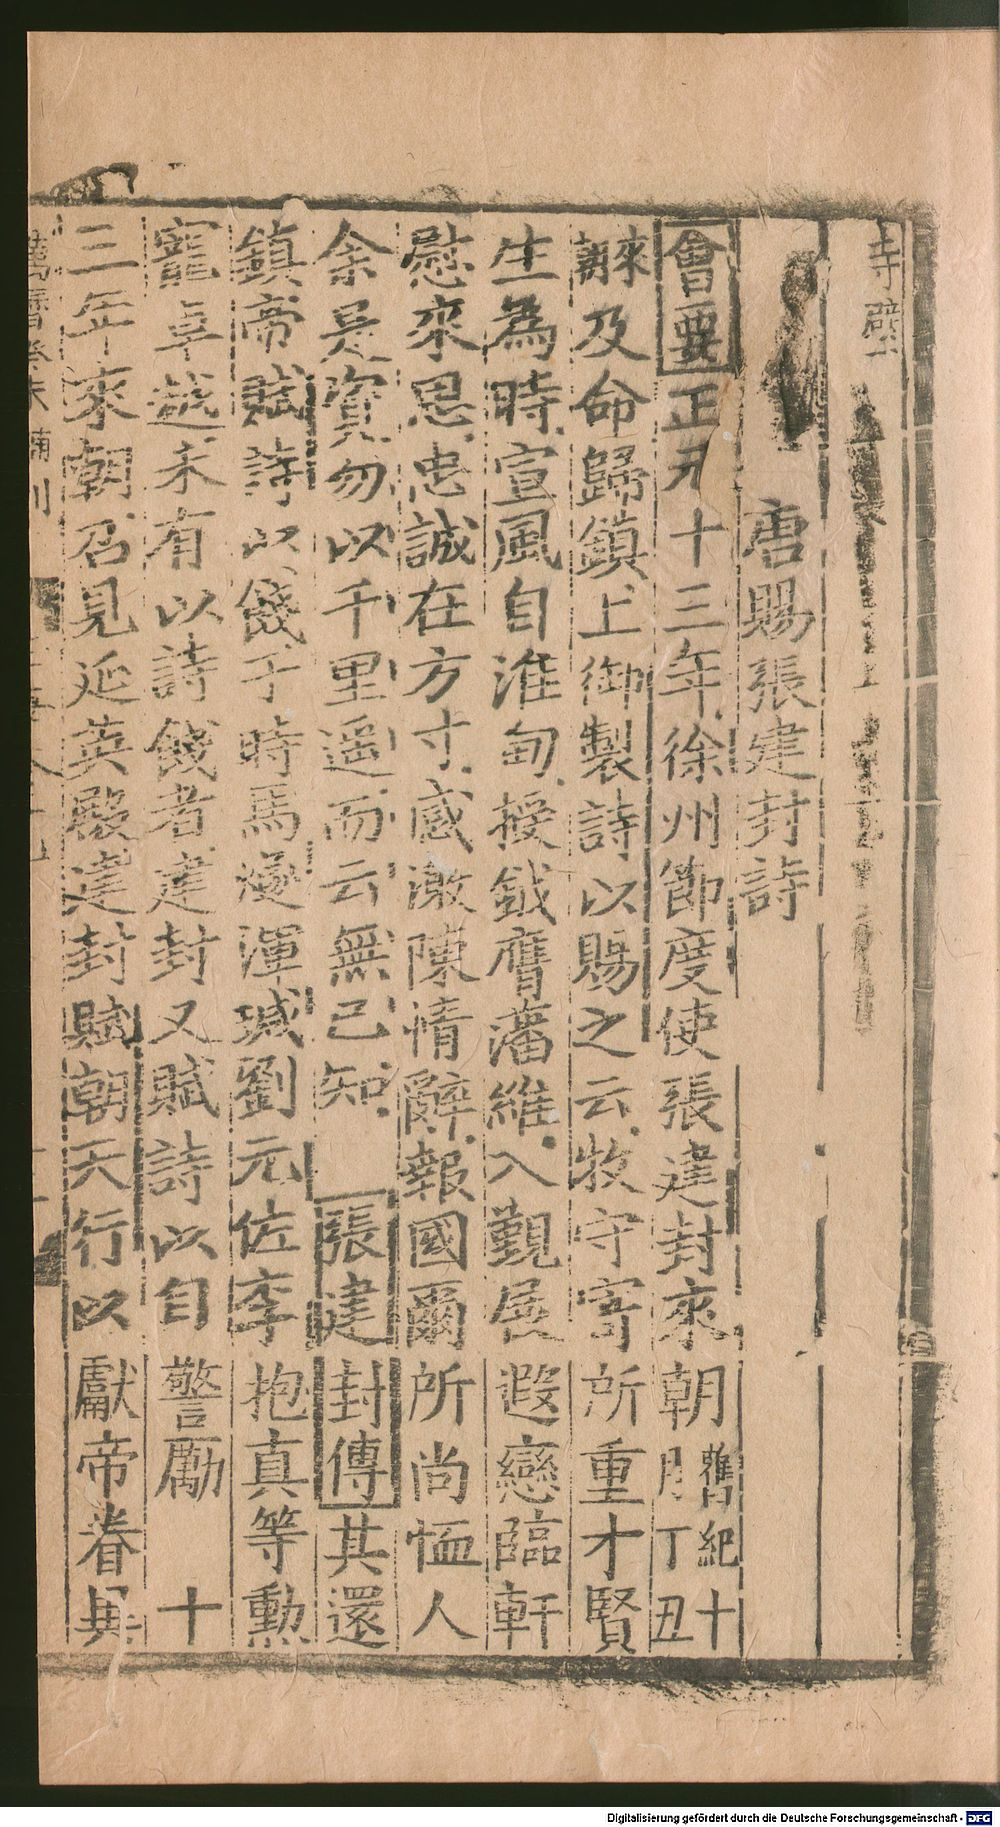 寺壁
唐賜張建封詩
會要正元十三年徐州節度使張建封來朝舊紀十月丁丑
辭及命歸鎮上御製詩以賜之云牧守寄所重才賢
生為時宣風自淮甸授鉞膺藩維入覲展遐戀臨軒
慰來思忠誠在方寸感激陳情辭報國爾所尚恤人
余是資勿以千里遥而云無己知張建封傳其還
鎮帝賦詩以餞于時馬燧渾瑊劉元佐李抱真等勲
寵卓越未有以詩餞者建封又賦詩以自警勵 十
三年來朝召見延英殿建封賦朝天行以獻帝眷異
萬曆癸未補刊
Digitalisierung gefördert durch die Deutsche Forschungsgemeinschaft - DFG